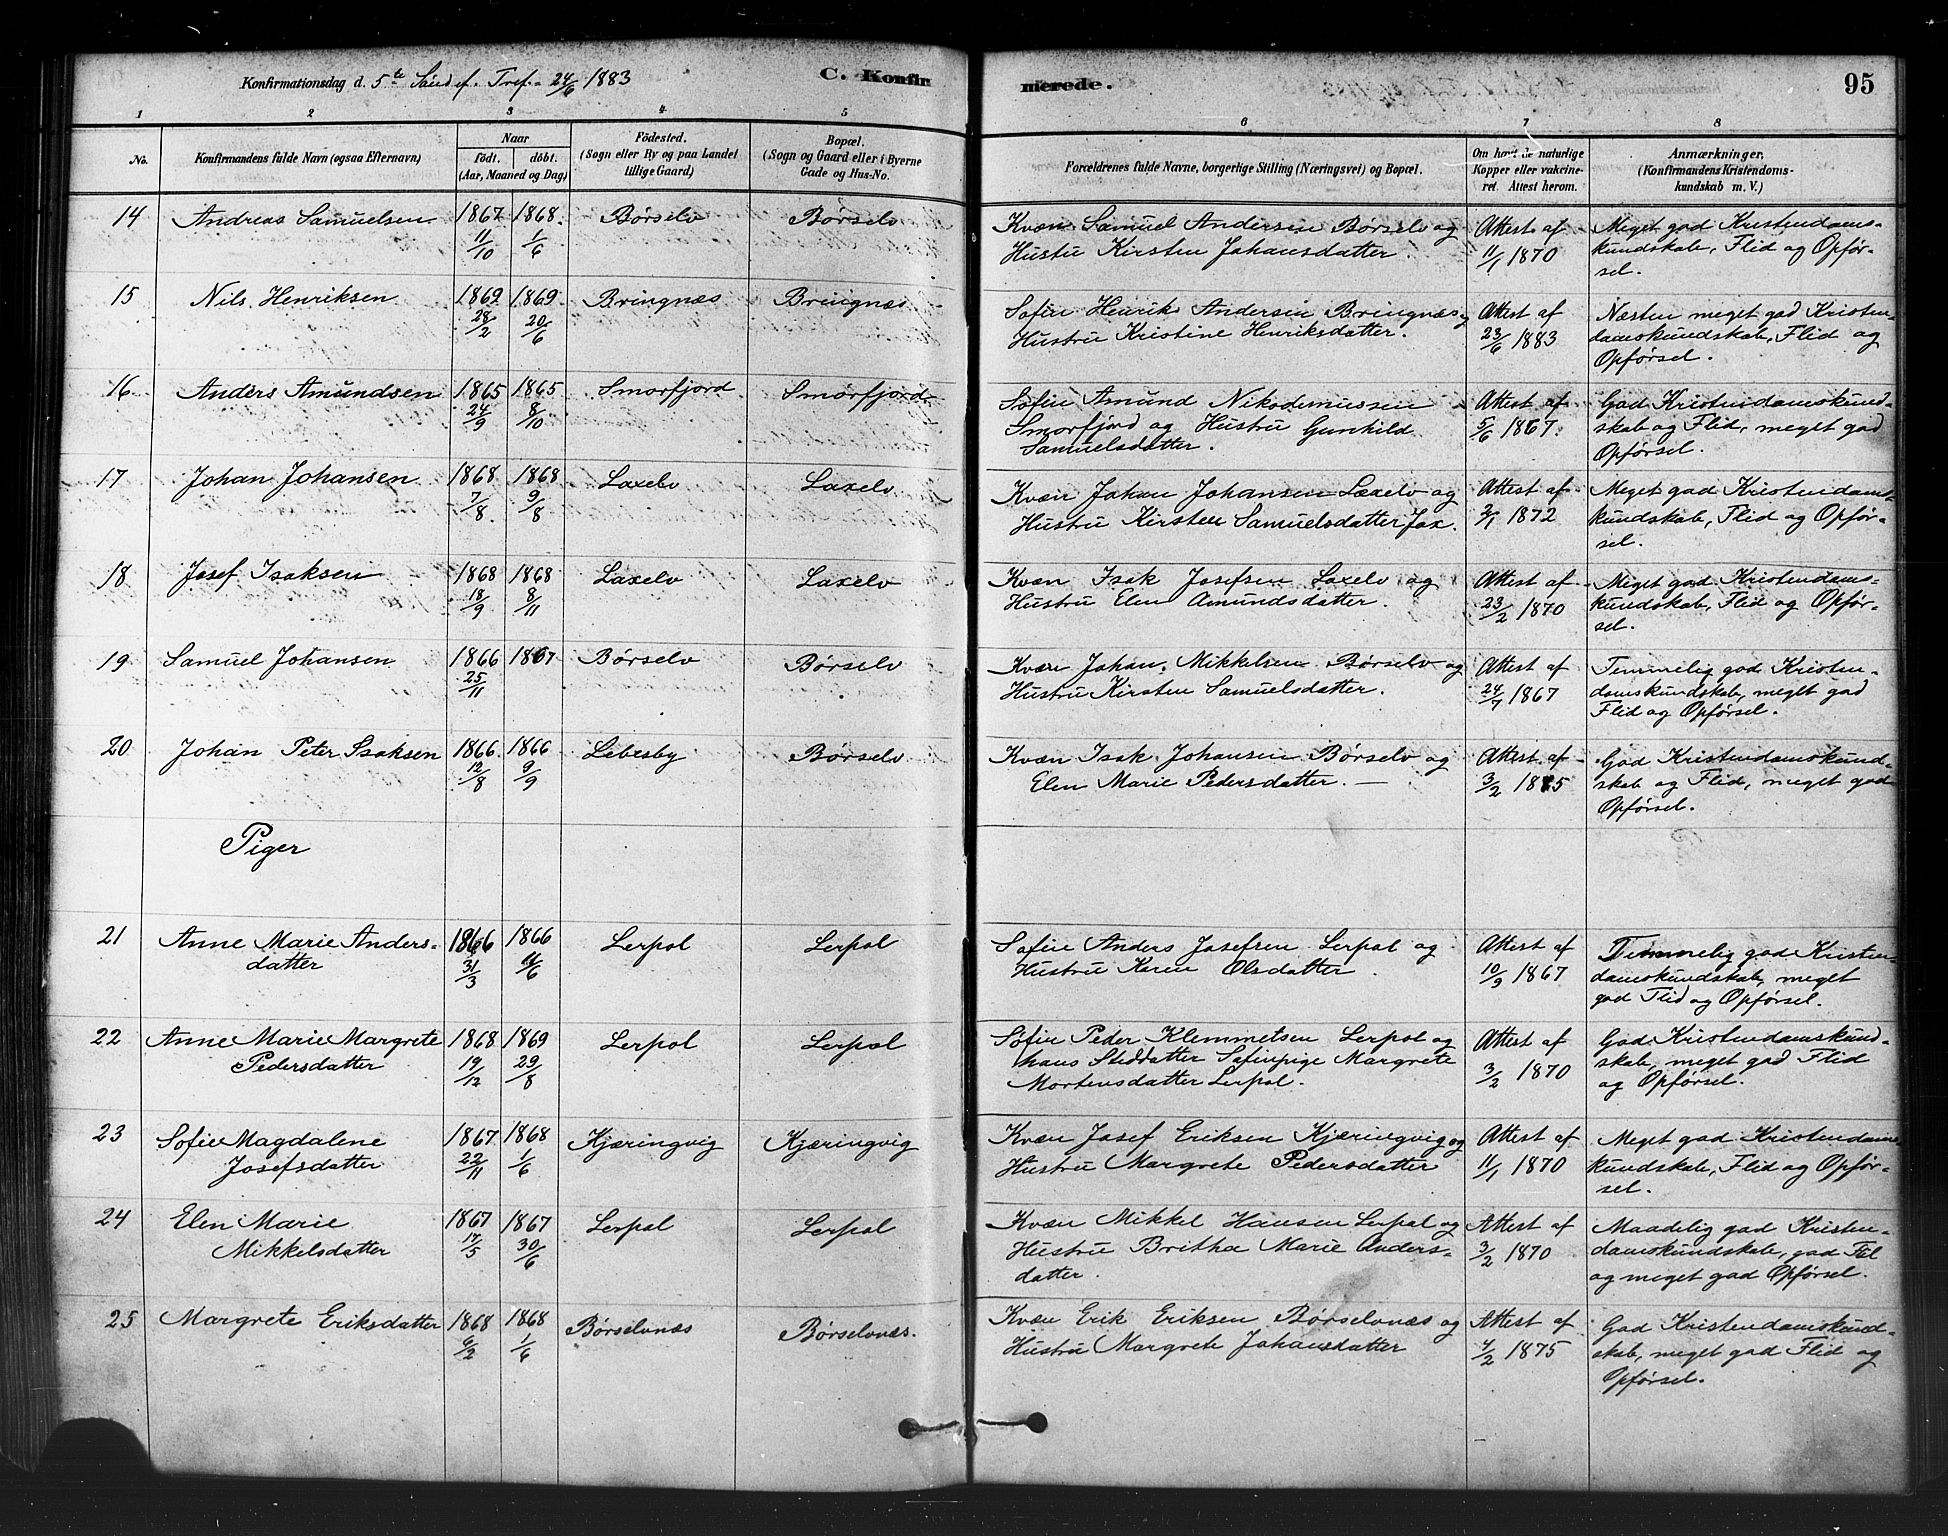 Konfirmationsdag d. 5te Sønd ef. Tref. 24/6 1883
C. Konfirmerede.
95
1 2 3 4 5 6 7 8
No.
Konfirmandens fulde Navn (ogsaa Efternavn)
Naar
födt. döbt.
(Aar, Maaned og Dag)
Födested.
(Sogn eller By og paa Landet
tillige Gaard)
Bopæl.
(Sogn og Gaard eller i Byerne
Gade og Hus-No.
Forældrenes fulde Navne, borgerlige Stilling (Næringsvei) og Bopæl.
Om havt de naturlige
Kopper eller vakcine-
ret. Attest herom.
Anmærkninger.
(Konfirmandens Kristendoms-
kundskab m. V.)
14 Andreas Samuelsen 1867 11/10 1868 1/6 Börselv Börselv
Kvæn Samuel Andersen Börselv og
Hustu Kirsten Johansdatter.
Attest af
11/1 1870
Meget god Kristendoms-
kundskab, Flid og Opfør-
sel.
15 Nils Henriksen 1869 28/2 1869 20/6 Bringnæs Bringnæs
Søfin Henrik Andersen Bringnæs og
Hustru Kristine Henriksdatter.
Attest af
23/6 1883
Næsten meget god Kristen-
domskundskab, Flid og
Opførsel.
16 Anders Amundsen 1865 24/9 1865 8/10 Smorfjord Smørfjord
Søfin Amund Nikodemussen
Smorfjord og Hustru Gunhild
Samuelsdatter.
Attest af
5/6 1867.
God Kristendomskund-
skab og Flid, meget god
Opførsel.
17 Johan Johansen 1868 7/8 1868 9/8 Laxelv Laxelv
Kvæn Johan Johansen Laxelv og
Hustru Kirsten Samuelsdatter Jax.
Attest af
2/1 1872
Meget god Kristendoms-
kundskab, Flid og Opfør-
sel.
18 Josef Isaksen 1868 18/9 1868 8/11 Laxelv Laxelv
Kvæn Isak Josefsen Laxelv og
Hustru Elen Amundsdatter.
Attest af
23/2 1870
Meget god Kristendoms-
kundskab, Flid og Opfør-
sel.
19 Samuel Johansen 1866 25/11 1867 Börselv Börselv
Kvæn Johan Mikkelsen Börselv og
Hustru Kirsten Samuelsdatter.
Attest af
24/7 1867
Temmelig god Kristen-
domskundskab, meget god
Flid og Opførsel.
20 Johan Peter Isaksen 1866 12/8 1866 9/9 Lebesby Börselv
Kvæn Isak Johansen Börselv og
Elen Marie Pedersdatter. —
Attest af
3/2 1875
God Kristendomskund-
skab og Flid, meget god
Opførsel.
Piger
21 Anne Marie Anders-
datter 1866 31/3 1866 /6 Lerpol Lerpol
Søfin Anders Josefsen Lerpol og
Hustru Karen Olsdatter.
Attest af
10/9 1867
Temmelig god Kristen-
domskundskab, meget
god Flid og Opførsel.
22 Anne Marie Margrete
Pedersdatter 1868 19/12 1869 29/8 Lerpol Lerpol
Søfin Peder Klemmetsen Lerpol og
hans Steddatter Søfinpige Margrete
Mortensdatter Lerpol.
Attest af
3/2 1870
God Kristendomskund-
skab, meget god Flid
og Opførsel.
23 Sofie Magdalene
Josefsdatter 1867 22/11 1868 1/6 Kjæringvig Kjæringvig
Kvæn Josef Eriksen Kjæringvig og
Hustru Margrete Pedersdatter
Attest af
11/1 1870
Meget god Kristendoms-
kundskab, Flid og Opfør-
sel.
24 Elen Marie
Mikkelsdatter 1867 17/5 1867 30/6 Lerpol Lerpol
Kvæn Mikkel Hansen Lerpol og
Hustru Britha Marie Anders-
datter.
Attest af
3/2 1870
Maadelig god Kristen-
domskundskab, god Flid
og meget god Opførsel.
25 Margrete Eriksdatter 1868 6/2 1868 1/6 Börselvnæs Börselvnæs.
Kvæn Erik Eriksen Börselvnæs og
Hustru Margrete Johansdatter
Attest af
4/2 1875
God Kristendomskund-
skab, meget god Flid og
Opførsel.